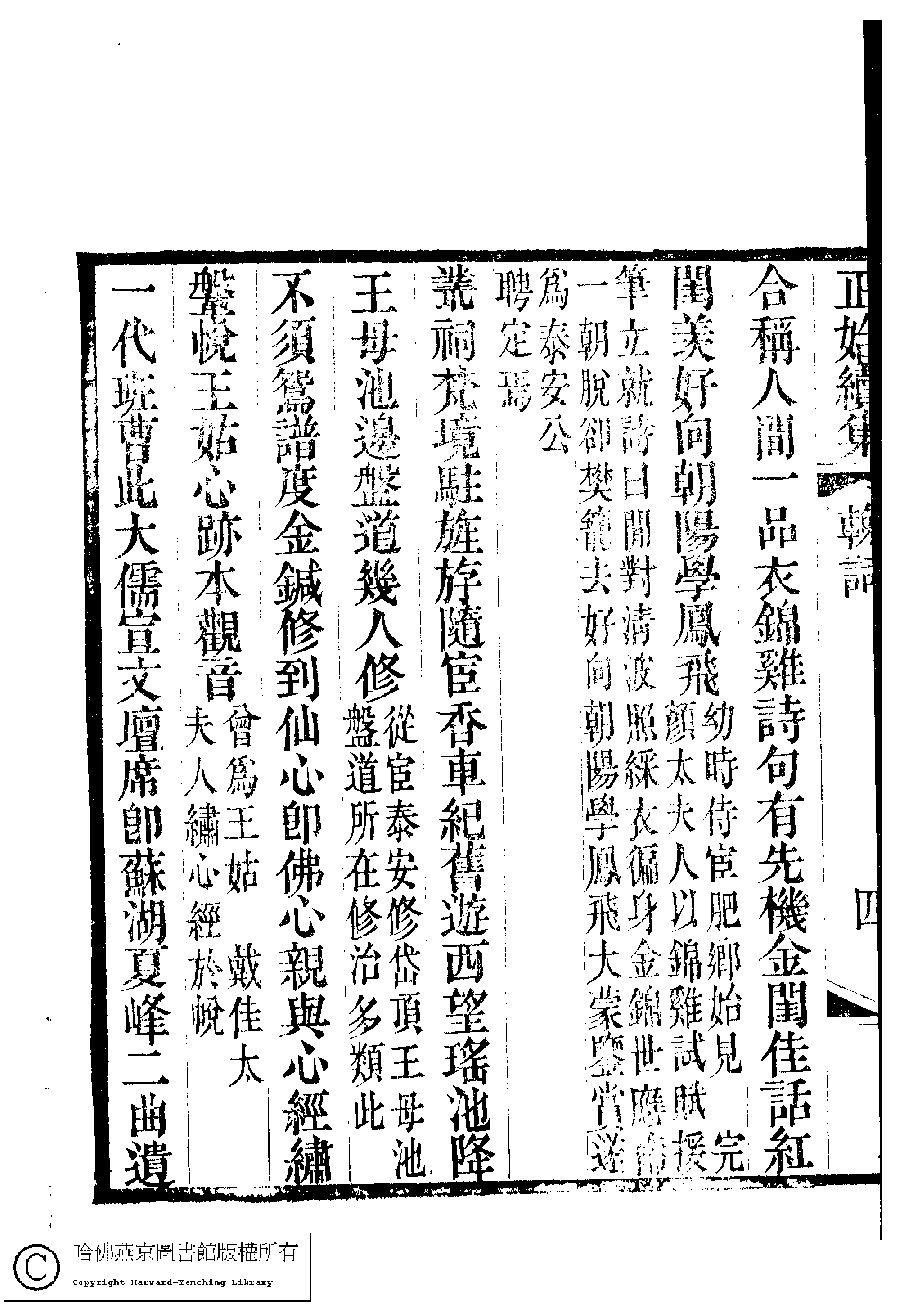 正始續集
輓詩
四
合稱人間一品衣錦雞詩句有先機金閨佳話紅
閨美好向朝陽學鳳飛
幼時侍宦肥鄉始見 完
顏太夫人以錦雞試賦援
筆立就詩曰閒對清波照綵衣偏身金錦世應
一朝脫卻樊籠去好向朝陽學鳳飛大蒙鑒賞遂
爲泰安公
聘定焉
叢祠梵境駐旌斿隨宦香車紀舊遊西望瑤池降
王母池邊盤道幾人修
從宦泰安修岱頂王母池
盤道所在修治多類此
不須鴛譜度金鍼修到仙心卽佛心親與心經繡
鞶帨王姑心跡本觀音
曾爲王姑 戴佳太
夫人繡心經於帨
一代班曹此大儒宣文壇席卽蘇湖夏峰二曲遺
哈佛燕京圖書館版權所有
Copyright Harvard-Yenching Library